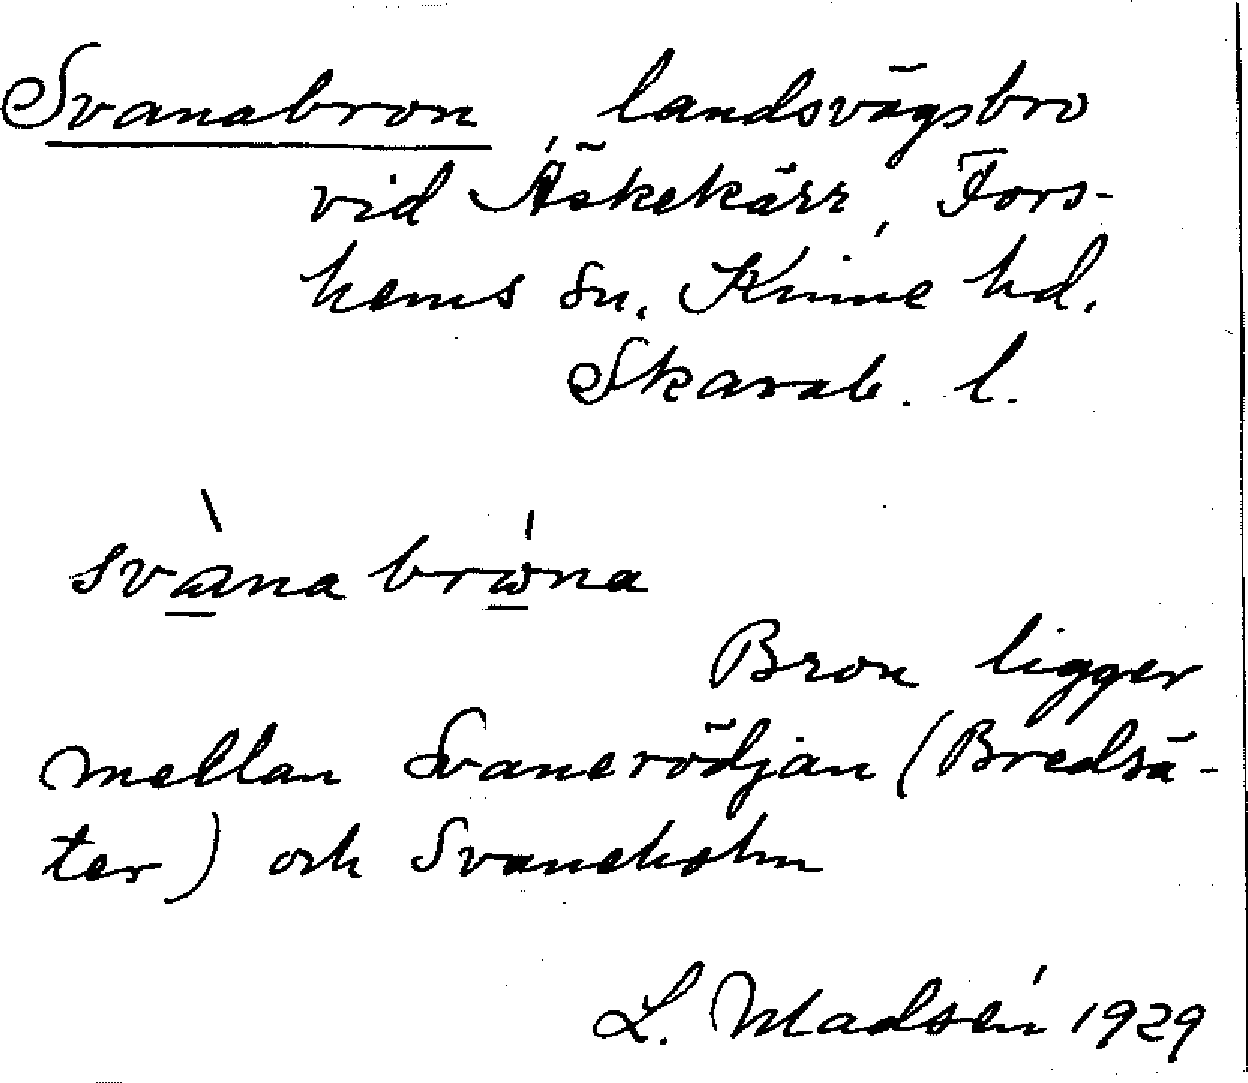 Svanabron, landsvägsbro
vid Äskekärr, Fors-
hems sn. Kinne hd.
Skarab. l.
svàna bróna
Bron ligger
mellan Svanerödjan (Bredsä-
ter) och Svaneholm
L. Madsén 1929